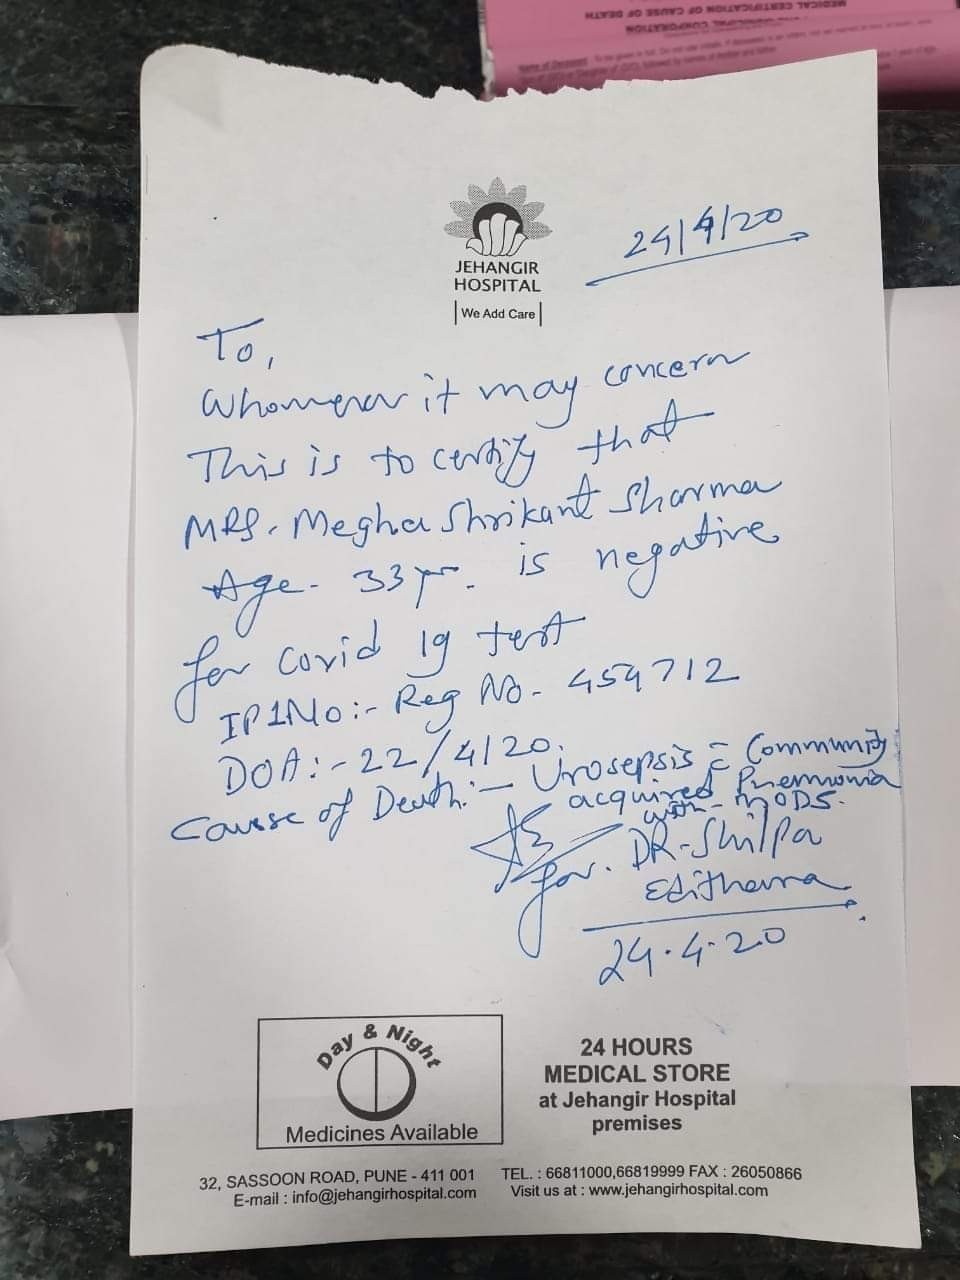 MEDICAL CERTIFICATION OF CAUSE OF DEATH
CORPORATION
Name of Deceased
JEHANGIR
HOSPITAL
We Add Care
24/4/20
To,
Whomever it may concern
This is to certify that
MRS. Megha Shrikant Sharma
Age - 33 yr. is negative
for Covid 19 test
IP1No:- Reg No - 454712
DOA:- 22/4/20.
Cause of Death:- Urosepsis c̄ Community
acquired Pnemonia
with - MODS.
for. DR-Shilpa
24.4.20
Day & Night
Medicines Available
24 HOURS
MEDICAL STORE
at Jehangir Hospital
premises
32, SASSOON ROAD, PUNE - 411 001 TEL. : 66811000,66819999 FAX : 26050866
E-mail : info@jehangirhospital.com Visit us at : www.jehangirhospital.com